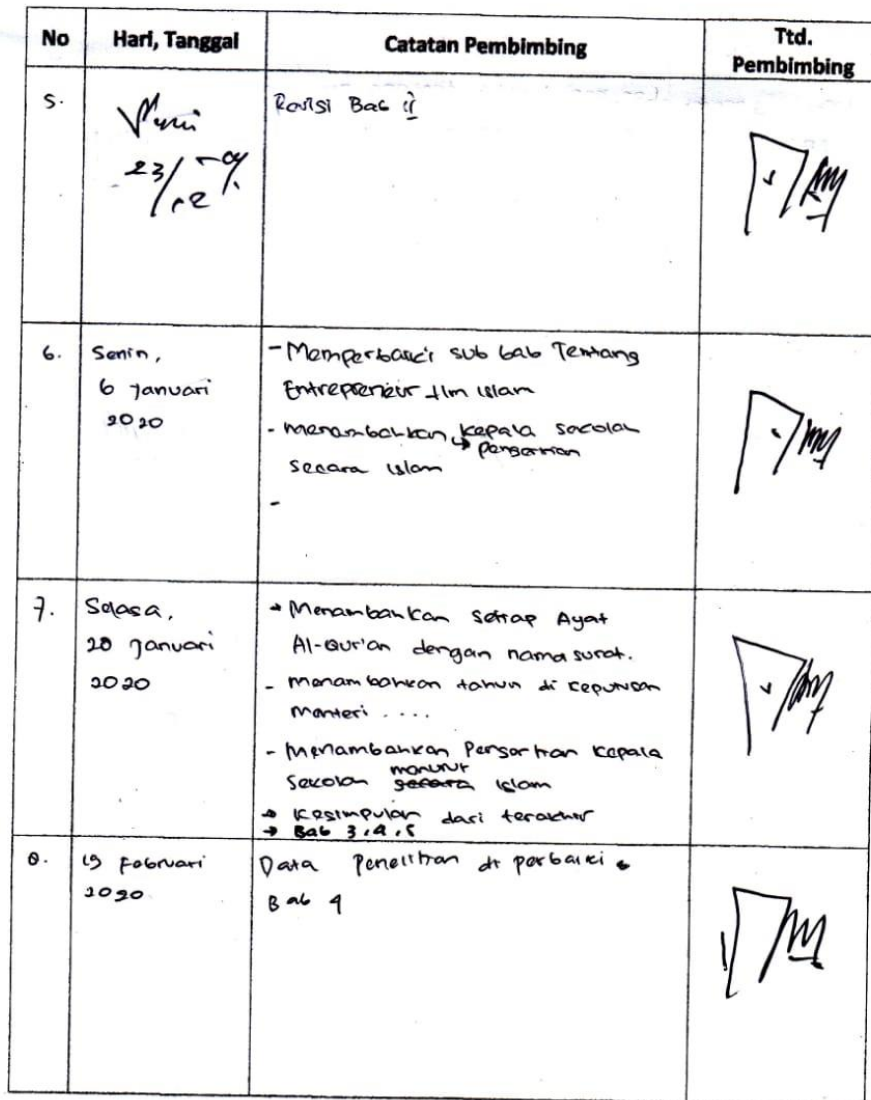 No Hari, Tanggal Catatan Pembimbing Ttd.
Pembimbing
5. Revisi Bab ii
23/12
6. Senin,
6 Januari
2020
- Memperbaiki sub bab Tentang
Entrepreneur dlm islam
- Menambahkan kepala sekolah
pengertian
secara islam
-
7. Selasa,
28 Januari
2020
Menambahkan setiap Ayat
Al-Qur'an dengan nama surat.
- Menambahkan tahun di keputusan
menteri ....
- Menambahkan Pengertian kepala
menurut
Sekolah secara islam
→ Kesimpulan dari terakhir
→ Bab 3, 4, 5
8. 19 Februari
2020
Data Penelitian di perbaiki
Bab 4